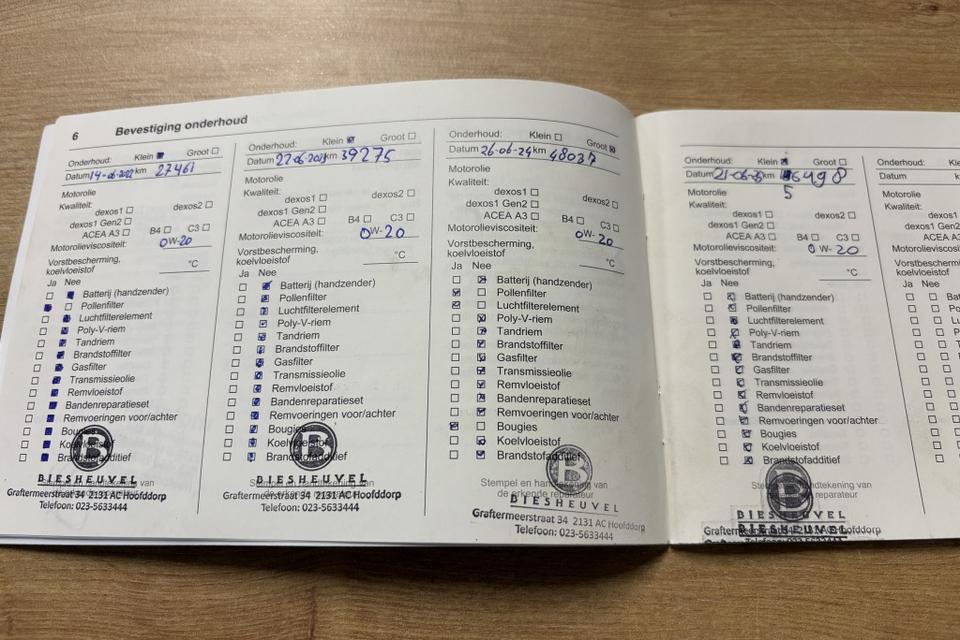 6 Bevestiging onderhoud
Onderhoud: Klein Groot
Datum 14-06-2022 km 27461
Motorolie
Kwaliteit:
dexos1 dexos2
dexos1 Gen2
ACEA A3 B4 C3
Motorolieviscositeit: 0W-20
Vorstbescherming,
koelvloeistof °C
Ja Nee
Batterij (handzender)
Pollenfilter
Luchtfilterelement
Poly-V-riem
Tandriem
Brandstoffilter
Gasfilter
Transmissieolie
Remvloeistof
Bandenreparatieset
Remvoeringen voor/achter
Bougies
Koelvloeistof
Brandstofadditief
B
BIESHEUVEL
Graftermeerstraat 34 2131 AC Hoofddorp
Telefoon: 023-5633444
Onderhoud: Klein Groot
Datum km 39275
Motorolie
Kwaliteit:
dexos1 dexos2
dexos1 Gen2
ACEA A3 B4 C3
Motorolieviscositeit: 0W-20
Vorstbescherming,
koelvloeistof °C
Ja Nee
Batterij (handzender)
Pollenfilter
Luchtfilterelement
Poly-V-riem
Tandriem
Brandstoffilter
Gasfilter
Transmissieolie
Remvloeistof
Bandenreparatieset
Remvoeringen voor/achter
Bougies
Koelvloeistof
Brandstofadditief
B
BIESHEUVEL
Graftermeerstraat 34 2131 AC Hoofddorp
Telefoon: 023-5633444
Onderhoud: Klein Groot
Datum 26-06-24 km 48037
Motorolie
Kwaliteit:
dexos1 dexos2
dexos1 Gen2
ACEA A3 B4 C3
Motorolieviscositeit: 0W-20
Vorstbescherming,
koelvloeistof °C
Ja Nee
Batterij (handzender)
Pollenfilter
Luchtfilterelement
Poly-V-riem
Tandriem
Brandstoffilter
Gasfilter
Transmissieolie
Remvloeistof
Bandenreparatieset
Remvoeringen voor/achter
Bougies
Koelvloeistof
Brandstofadditief
Stempel en handtekening van
de erkende reparateur
B
BIESHEUVEL
Graftermeerstraat 34 2131 AC Hoofddorp
Telefoon: 023-5633444
Onderhoud: Klein Groot
Datum km
5
Motorolie
Kwaliteit:
dexos1 dexos2
dexos1 Gen2
ACEA A3 B4 C3
Motorolieviscositeit: 0W-20
Vorstbescherming,
koelvloeistof °C
Ja Nee
Batterij (handzender)
Pollenfilter
Luchtfilterelement
Poly-V-riem
Tandriem
Brandstoffilter
Gasfilter
Transmissieolie
Remvloeistof
Bandenreparatieset
Remvoeringen voor/achter
Bougies
Koelvloeistof
Brandstofadditief
B
BIESHEUVEL
BIESHEUVEL
Onderhoud: Kle
Datum k
Motorolie
Kwaliteit:
dexos1
dexos1 Gen2
ACEA A3
Motorolieviscosit
Vorstbescherming,
koelvloeistof
Ja Nee